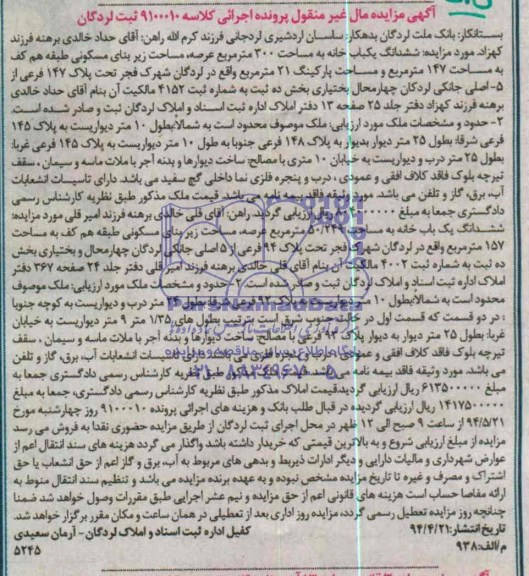 آگهی مزایده مال غیر منقول پرونده اجرائی کلاسه ۹۱۰۰۰۱۰ ثبت لردگان
بستانکار: بانک ملت لردگان بدهکار: ساسان اردشیری لردجانی فرزند کرم الله راهن: آقای حداد خالدی برهنه فرزند
کهزاد. مورد مزایده: ششدانگ یکباب خانه به مساحت ۳۰۰ مترمربع عرصه، مساحت زیر بنای مسکونی طبقه هم کف
به مساحت ۱۴۷ مترمربع و مساحت پارکینگ ۲۱ مترمربع واقع در لردگان شهرک فجر تحت پلاک ۱۴۷ فرعی از
۵- اصلی جانکی لردکان چهارمحال بختیاری بخش ده ثبت به شماره ثبت ۴۱۵۲ مالکیت آن بنام آقای حداد خالدی
برهنه فرزند کهزاد دفتر جلد ۲۵ صفحه ۱۳ دفتر املاک اداره ثبت اسناد و املاک لردگان ثبت و صادر شده است.
۲- حدود و مشخصات ملک مورد ارزیابی: ملک موصوف محدود است به شمالا: بطول ۱۰ متر دیواریست به پلاک ۱۴۵
فرعی شرقا: بطول ۲۵ متر دیوار بدیوار به پلاک ۱۴۸ فرعی جنوبا به طول ۱۰ متر دیواریست به پلاک ۱۴۵ فرعی غربا:
بطول ۲۵ متر درب و دیواریست به خیابان ۱۰ متری با مصالح: ساخت دیوارها و بدنه آجر با ملات ماسه و سیمان، سقف
تیرچه بلوک فاقد کلاف افقی و عمودی، درب و پنجره فلزی نما داخلی گچ سفید می باشد. دارای تاسیسات انشعابات
آب، برق، گاز و تلفن می باشد. مورد وثیقه فاقد بیمه نامه می باشد. قیمت ملک مذکور طبق نظریه کارشناس رسمی
دادگستری جمعا به مبلغ ریال ارزیابی گردید. راهن: آقای قلی خالدی برهنه فرزند امیر قلی مورد مزایده:
ششدانگ یک باب خانه به مساحت مترمربع عرصه، مساحت زیر بنای مسکونی طبقه هم کف به مساحت
۱۵۷ مترمربع واقع در لردگان شهرک فجر تحت پلاک ۹۴ فرعی از ۵ اصلی جانکی لردگان چهارمحال و بختیاری بخش
ده ثبت به شماره ثبت ۴۰۰۲ مالکیت آن بنام آقای قلی خالدی برهنه فرزند امیر قلی دفتر جلد ۲۴ صفحه ۳۶۷ دفتر
املاک اداره ثبت اسناد و املاک لردگان ثبت و صادر شده است. ۲- حدود و مشخصات ملک مورد ارزیابی: ملک موصوف
محدود است به شمالا: بطول ۱۰ متر دیواریست به پلاک ۹۲ فرعی شرقا: بطول متر درب و دیواریست به کوچه جنوبا
: در دو قسمت که قسمت اول در حالت جنوب شرقی است بترتیب بطول های ۱/۳۵ متر ۹ متر دیواریست به خیابان
غربا: بطول ۲۵ متر دیوار به دیوار پلاک ۹۳ فرعی با مصالح: ساخت دیوارها و بدنه آجر با ملات ماسه و سیمان، سقف
تیرچه بلوک فاقد کلاف افقی و عمودی پنجره فلزی می انشعابات آب، برق، گاز و تلفن
می باشد. مورد وثیقه فاقد بیمه نامه می باشد. مذکور طبق نظریه کارشناس رسمی دادگستری جمعا به
مبلغ ۶۱۳۵۰۰۰۰۰ ریال ارزیابی گردید. قیمت املاک مذکور طبق نظریه کارشناس رسمی دادگستری، جمعا به مبلغ
۱۴۱۷۵۰۰۰۰۰ ریال ارزیابی گردیده در قبال طلب بانک و هزینه های اجرائی پرونده ۹۱۰۰۰۱۰ روز چهارشنبه مورخ
۹۴/۵/۲۱ از ساعت ۹ صبح الی ۱۲ ظهر در محل اجرای ثبت لردگان از طریق مزایده حضوری نقدا به فروش می رسد
مزایده از مبلغ ارزیابی شروع و به بالاترین قیمتی که خریدار داشته باشد واگذار می گردد هزینه های سند انتقال اعم از
عوارض شهرداری و مالیات دارایی و دیگر ادارات ذیربط و بدهی های مربوط به آب، برق و گاز اعم از حق انشعاب یا حق
اشتراک و مصرف و غیره تا تاریخ مزایده مشخص نبوده و به عهده برنده مزایده می باشد و تنظیم سند انتقال منوط به
ارائه مفاصا حساب است هزینه های قانونی اعم از حق مزایده و نیم عشر اجرایی طبق مقررات وصول خواهد شد ضمنا
چنانچه روز مزایده تعطیل رسمی گردد، مزایده روز اداری بعد از تعطیلی در همان ساعت و مکان مقرر برگزار خواهد شد.
تاریخ انتشار: ۹۴/۴/۲۱ کفیل اداره ثبت اسناد و املاک لردگان - آرمان سعیدی
م/الف: ۹۳۸ ۵۲۴۵